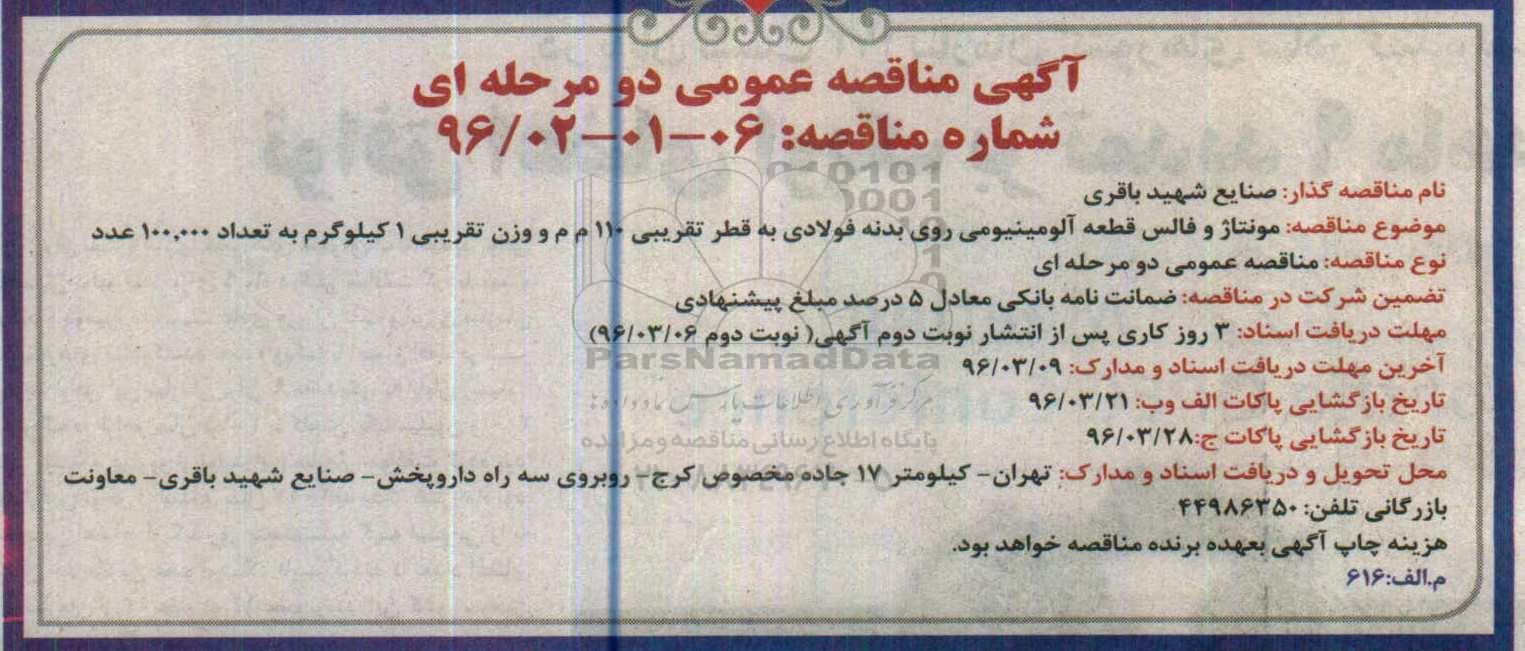 آگهی مناقصه عمومی دو مرحله ای
شماره مناقصه: ۰۶-۰۱-۹۶/۰۲
نام مناقصه گذار: صنایع شهید باقری
موضوع مناقصه: مونتاژ و فالس قطعه آلومینیومی روی بدنه فولادی به قطر تقریبی ۱۱۰ م م و وزن تقریبی ۱ کیلوگرم به تعداد ۱۰۰,۰۰۰ عدد
نوع مناقصه: مناقصه عمومی دو مرحله ای
تضمین شرکت در مناقصه: ضمانت نامه بانکی معادل ۵ درصد مبلغ پیشنهادی
مهلت دریافت اسناد: ۳ روز کاری پس از انتشار نوبت دوم آگهی( نوبت دوم ۹۶/۰۳/۰۶)
آخرین مهلت دریافت اسناد و مدارک: ۹۶/۰۳/۰۹
تاریخ بازگشایی پاکات الف وب: ۹۶/۰۳/۲۱
تاریخ بازگشایی پاکات ج:۹۶/۰۳/۲۸
محل تحویل و دریافت اسناد و مدارک: تهران- کیلومتر ۱۷ جاده مخصوص کرج- روبروی سه راه داروپخش- صنایع شهید باقری- معاونت
بازرگانی تلفن: ۴۴۹۸۶۳۵۰
هزینه چاپ آگهی بعهده برنده مناقصه خواهد بود.
م.الف:۶۱۶
ParsNamadData
مرکز فرآوری اطلاعات پارس نماد داده ها
پایگاه اطلاع رسانی مناقصه و مزایده